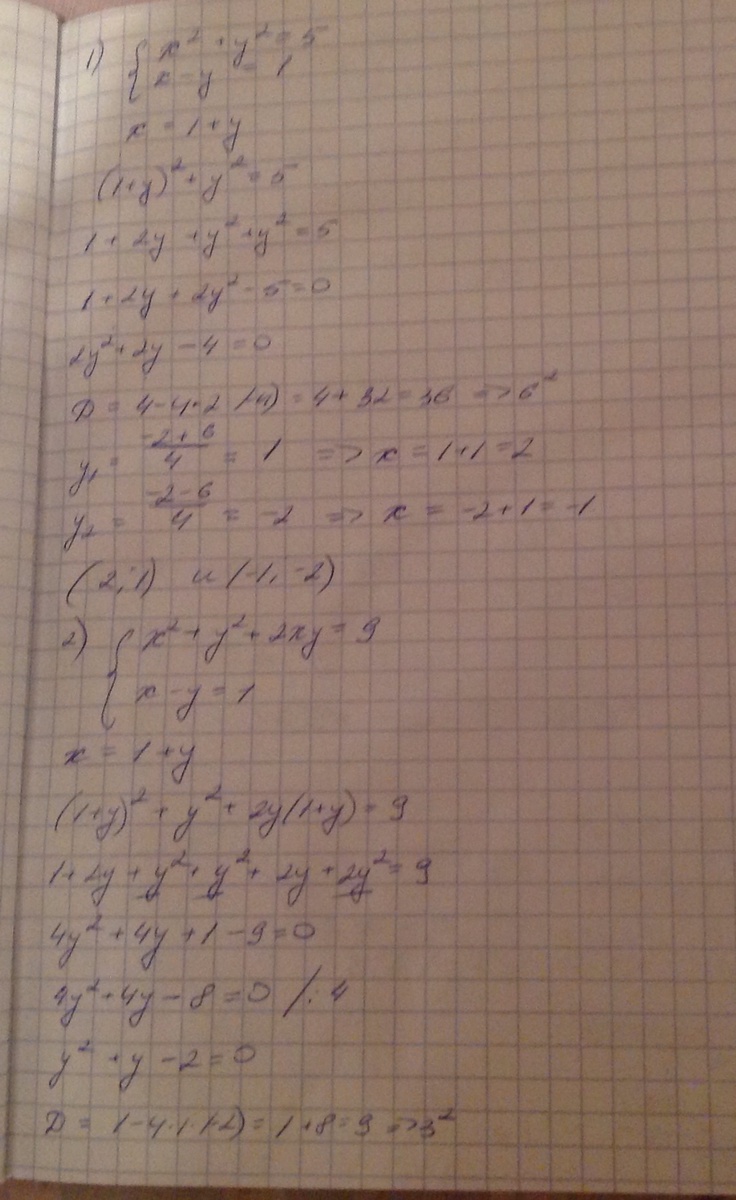 1) { x² + y² = 5
x - y = 1
x = 1 + y
(1+y)² + y² = 5
1 + 2y + y² + y² = 5
1 + 2y + 2y² - 5 = 0
2y² + 2y - 4 = 0
D = 4 - 4·2·(-4) = 4 + 32 = 36 => 6²
y₁ = (-2+6)/4 = 1 => x = 1+1 = 2
y₂ = (-2-6)/4 = -2 => x = -2+1 = -1
(2; 1) и (-1, -2)
2) { x² + y² + 2xy = 9
x - y = 1
x = 1 + y
(1+y)² + y² + 2y(1+y) = 9
1 + 2y + y² + y² + 2y + 2y² = 9
4y² + 4y + 1 - 9 = 0
4y² + 4y - 8 = 0 /: 4
y² + y - 2 = 0
D = 1 - 4·1·(-2) = 1 + 8 = 9 => 3²